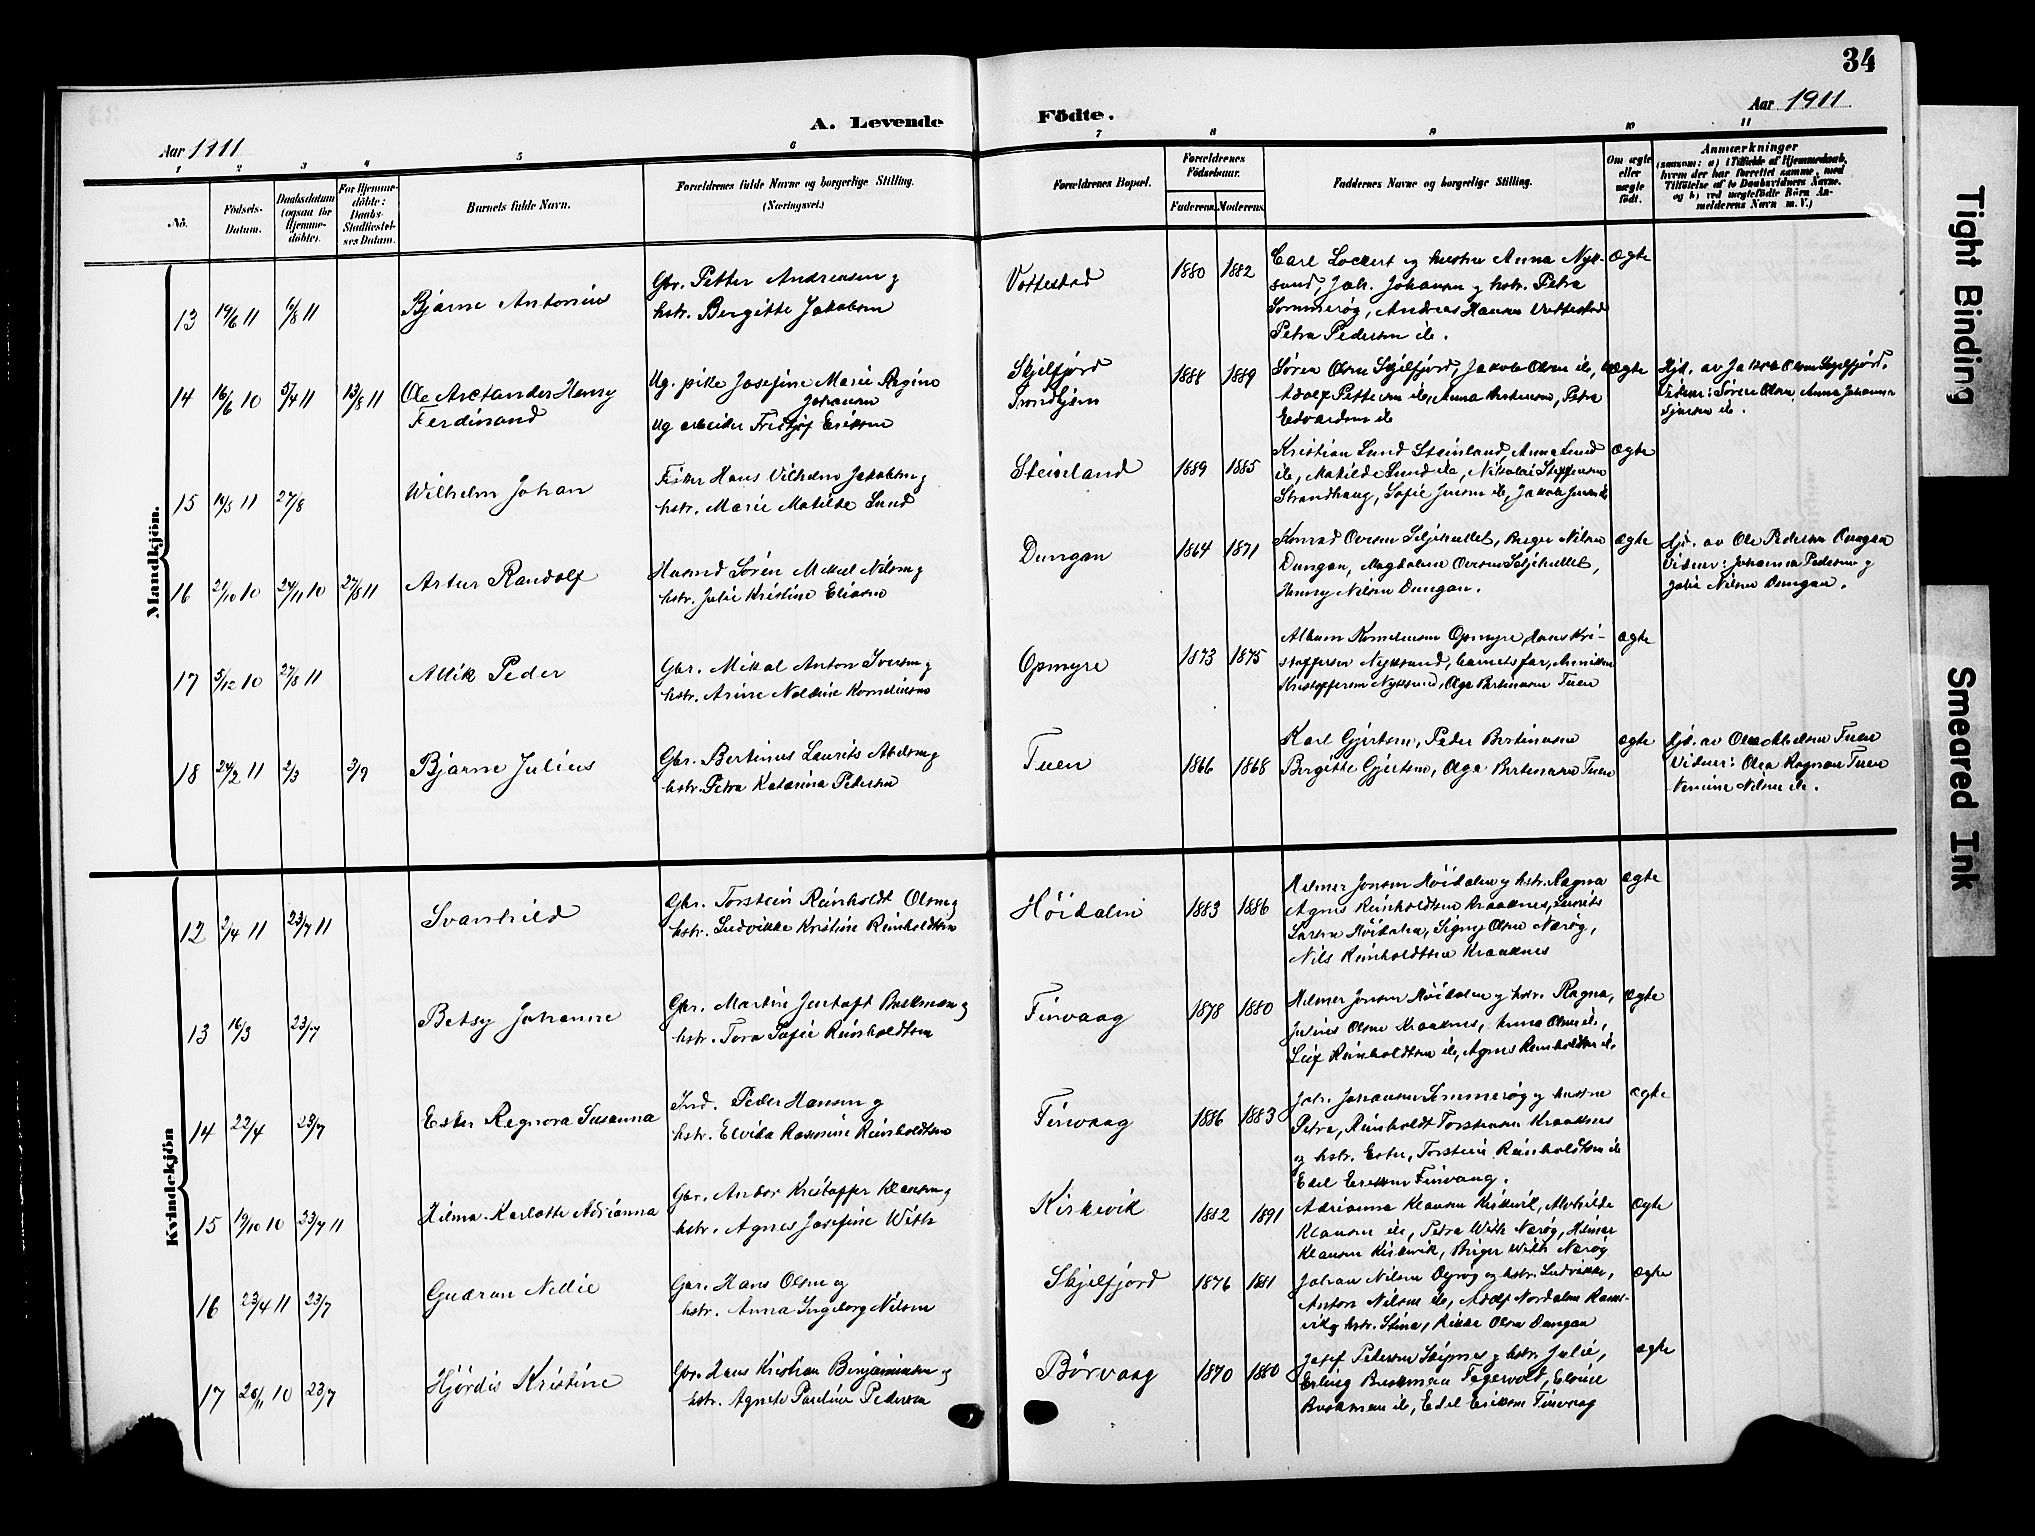 34
Aar 1911
A. Levende
Födte.
Aar 1911
1 2 3 4 5 6 7 8 9 10 11
No.
Födsels-Datum.
Daabsdatum (ogsaa for Hjemmedöbte).
For Hjemmedöbte: Daabs-Stadfæstelses Datum.
Barnets fulde Navn.
Forældrenes fulde Navne og borgerlige Stilling.
(Næringsvei.)
Forældrenes Bopæl.
Forældrenes Födselsaar.
Faderens. Moderens.
Faddernes Navne og borgerlige Stilling.
Om ægte eller uægte født.
Anmærkninger
(saasom: a) i Tilfælde af Hjemmedaab, hvem der har forrettet samme, med Tilföielse af to Daabsvidners Navne. og b) ved uægtefödte Börn Anmelderens Navn m. V.)
Mandkjön.
13 19/6 11 6/8 11 Bjarne Antonius
Gbr. Petter Andreasen og
hstr. Bergitte Jakobsen
Vottestad 1880 1882
Carl Lockert og hustru Anna Nyk-
sund, Joh. Johansen og hstr. Petra
Sommerøy, Andreas Hansen Vottestad
Petra Pedersen ib.
ægte
14 16/6 10 5/4 11 13/8 11 Ole Arctander Henry
Ferdinand
Ug. pike Josefine Marie Regine
Johansen
Ug arbeider Fritjof Eriksen
Skjelfjord
Trondhjem
1888 1889
Sören Olsen Skjelfjord, Jakob Olsen ib,
Adolf Pettersen ib, Anna Pedersen, Petra
Edvardsen ib
uægte
Hjd. av Jakob Olsen Skjelfjord.
Vidner: Sören Olsen, Anna Johanne
ib.
15 14/5 11 27/8 Wilhelm Johan
Fisker Hans Vilhelm Jakobsen og
hstr. Marie Matilde Lund
Steinland 1889 1885
Kristian Lund Steinland, Anna Lund
ib, Matilde Lund ib, Nikolai Steffensen
Strandhaug, Sofie Jensen ib, Jakob Jensen ib
ægte
16 21/10 10 24/11 10 27/8 11 Artur Randolf
Husmd Sören Mikal Nilsen og
hstr. Julie Kristine Eliasen
Dungan 1864 1871
Konrad Oversen Seljehullet, Birger Nilsen
Dungan, Magdalene Oversen Seljehullet,
Henry Nilsen Dungan.
ægte
Hjd. av Ole Pedersen Dungan
Vidner: Johanna Pedersen og
Julie Nilsen Dungan.
17 5/12 10 27/8 11 Alik Peder
Gbr. Mikal Anton Iversen og
hstr. Arine Noldine Korneliussen
Opmyre 1873 1875
Album Korneliussen Opmyre, Hans Kri-
stoffersen Nyksund, barnets far, Annikken
Kristoffersen Nyksund, Olga Bertinusen Tuen
ægte
18 24/2 11 2/3 3/9 Bjarne Julius
Gbr. Bertinus Laurits Abelsen og
hstr. Petra Katarina Pedersen
Tuen 1866 1868
Karl Gjertsen, Peder Bertinusen
Bergitte Gjertsen, Olga Bertinusen Tuen
ægte
Hjd. av Ole Abelsen Tuen
Vidner: Olea Tuen
Nilsen ib.
Kvindekjön
12 2/4 11 23/7 11 Svanhild
Gbr. Torstein Reinholdt Olsen og
hstr. Ludvikke Kristine Reinholdtsen
Höidalen 1883 1886
Hilmer Jonsen Höidalen og hstr. Ragna
Agnes Reinholdtsen Kraaknes, Laurits
Larsen Höidalen, Signy Olsen Nærøy,
Nils Reinholdtsen Kraaknes
ægte
13 16/3 23/7 Betsy Johanne
Gbr. Martin Jentoft Buskman og
hstr. Tora Sofie Reinholdtsen
Finvaag 1878 1880
Hilmer Jonsen Höidalen og hstr. Ragna,
Julius Olsen Kraaknes, Anna Olsen ib,
Leif Reinholdtsen ib, Agnes Reinholdtsen ib.
ægte
14 22/4 23/7 Ester Regnora Susanna
Ind. Peder Hansen og
hstr. Elvida Rasmine Reinholdtsen
Finvaag 1886 1883
Joh. Johansen Sommerøy og hustru
Petra, Reinholdt Torstensen Kraaknes
og hstr. Ester, Torstein Reinholdtsen ib
Edel Eriksen Finvaag.
ægte
15 19/10 10 23/7 11 Hilma Karlotte Adrianna
Gbr. Andor Kristoffer Klausen og
hstr. Agnes Josefine With
Kirkevik 1882 1891
Adrianna Klausen Kirkevik, Alvhilde
Klausen ib, Petra With Nærøy, Hilmar
Klausen Kirkevik, Birger With Nærøy
ægte
16 23/4 11 23/7 Gudrun Nelie
Gbr. Hans Olsen og
hstr. Anna Ingeborg Nilsen
Skjelfjord 1876 1881
Johan Nilsen og hstr. Ludvikke,
Anton Nilsen ib, Adolf Nordahl Rams-
vik og hstr. Stina, Rikke Olsen Dungan
ægte
17 20/11 10 23/7 Hjördis Kristine
Gbr. Hans Kristian Benjaminsen og
hstr. Agnete Pauline Pedersen
Börvaag 1870 1880
Josef Pedersen Skipnes og hstr. Julie,
Erling Buskman Fagervolt, Elvine
Buskman ib, Edel Eriksen Finvaag
ægte
Tight Binding
Smeared Ink